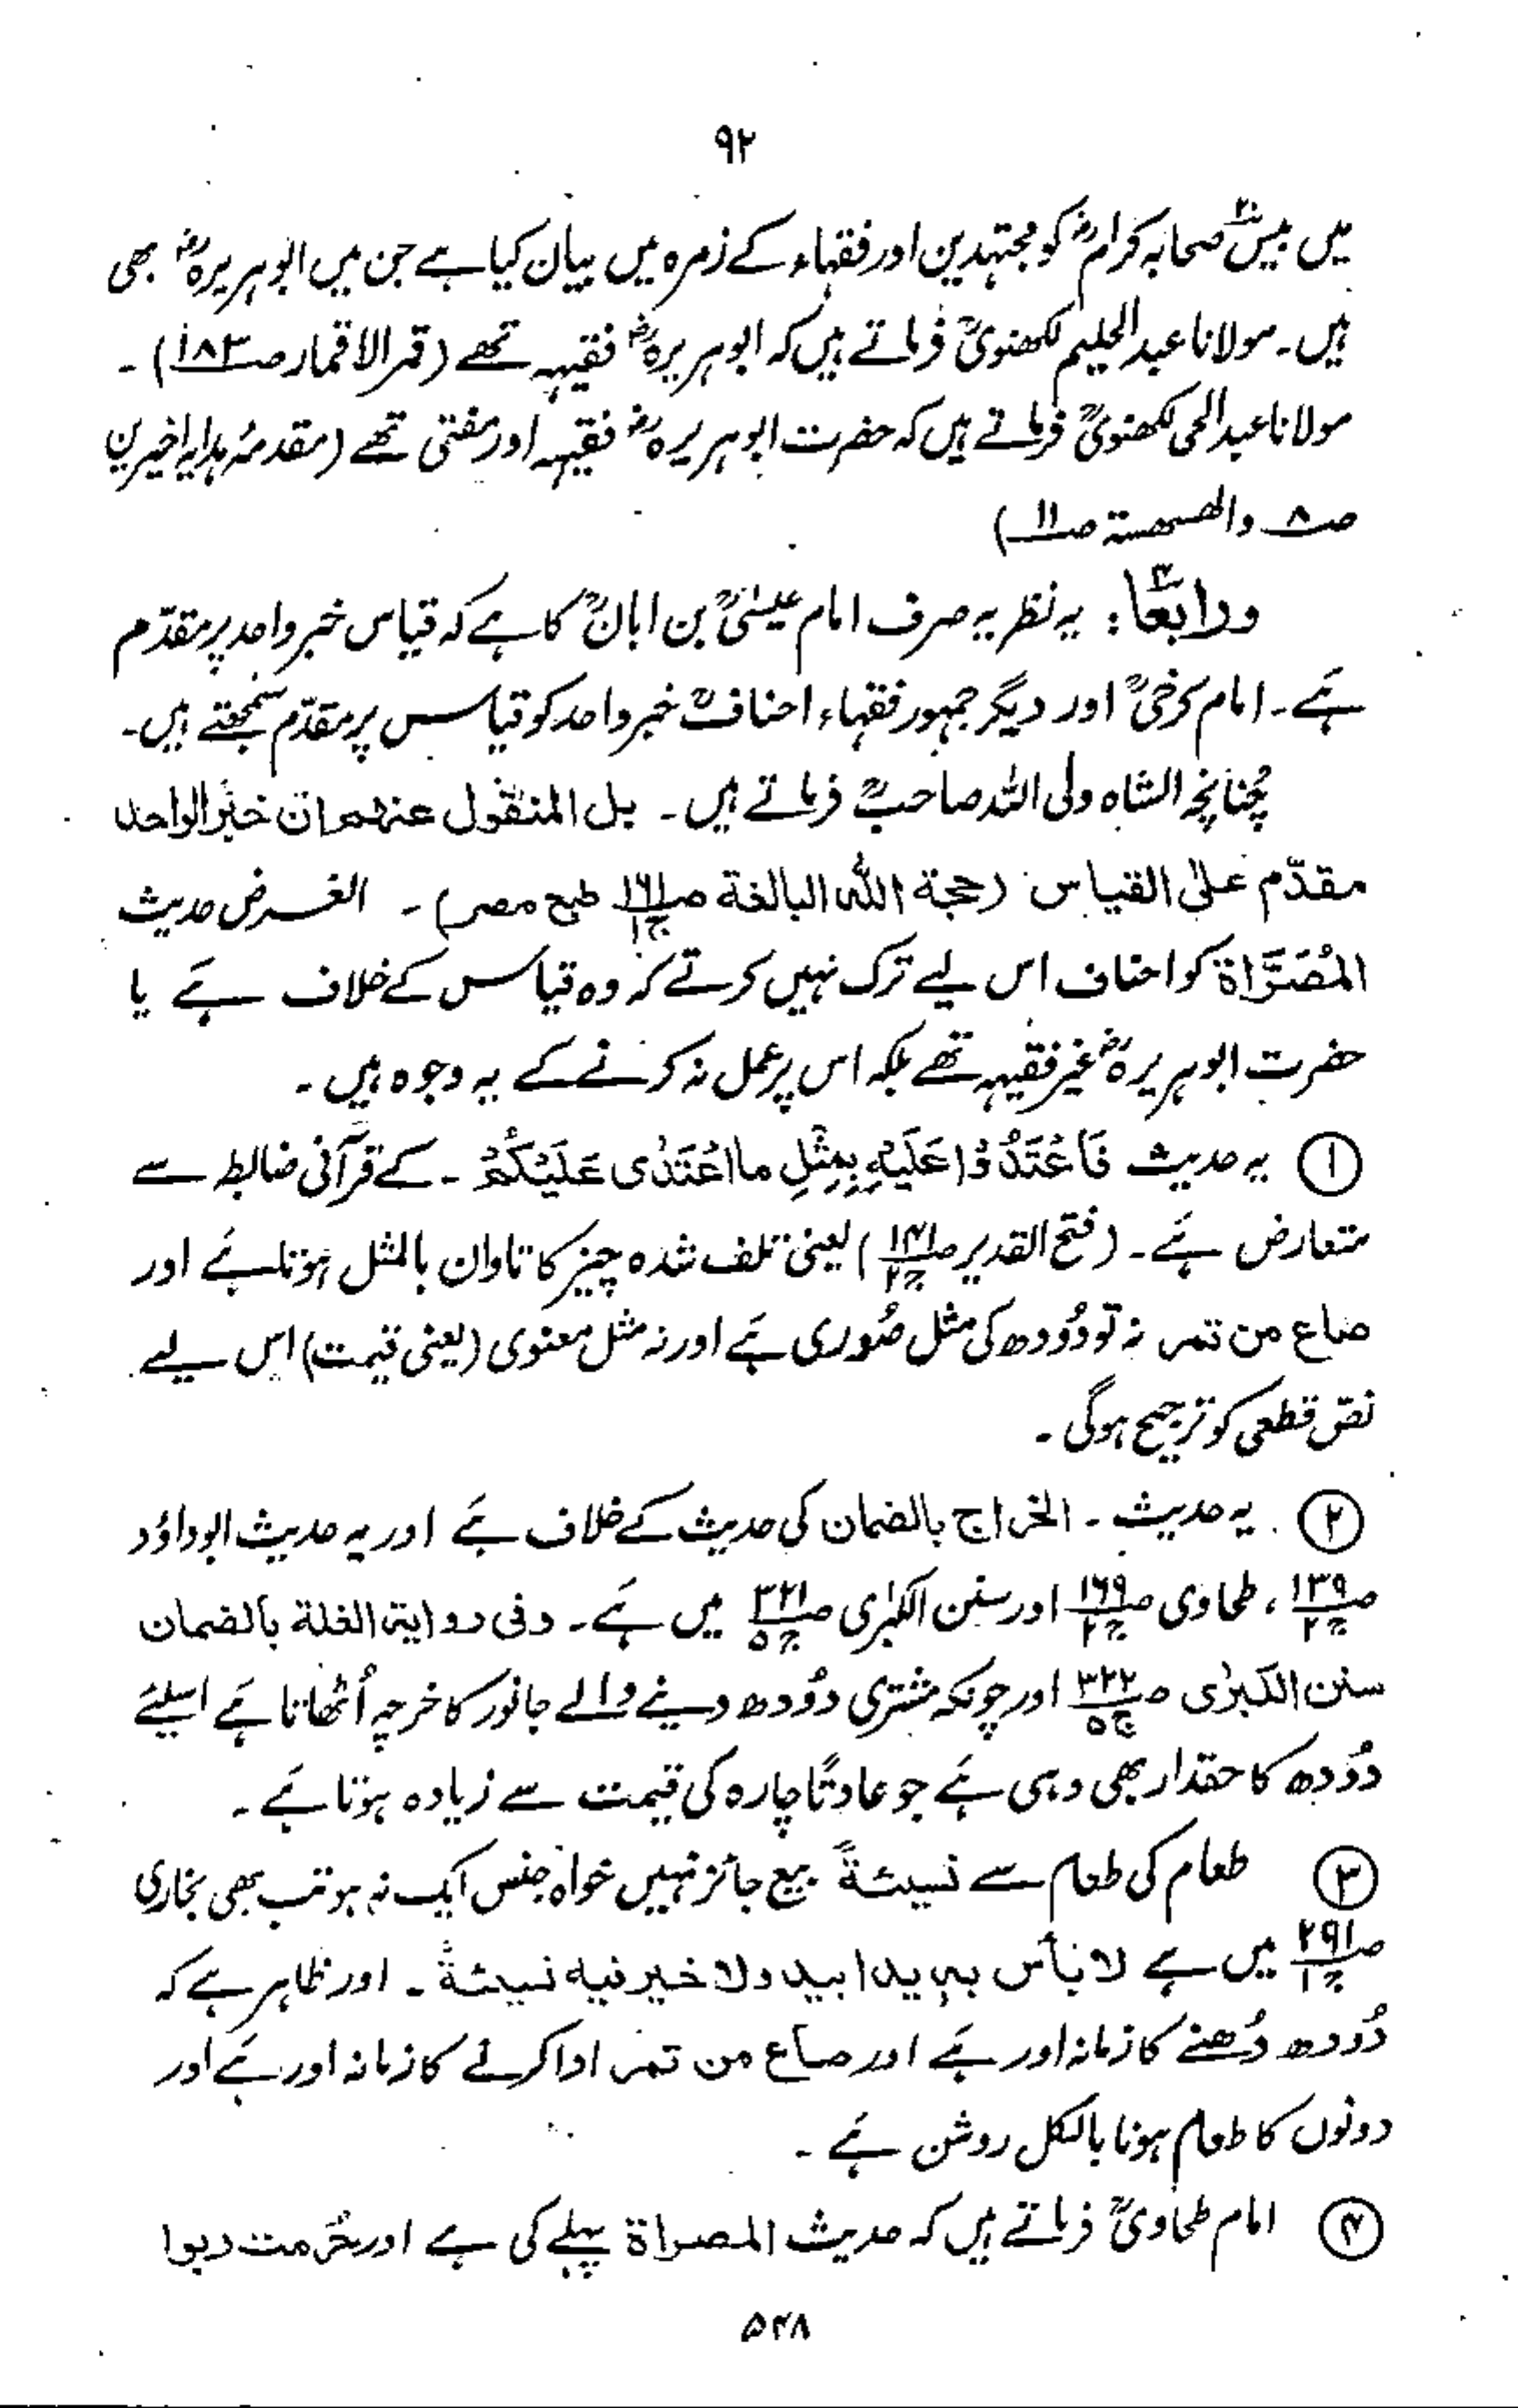 ۹۲
میں بیسؓ صحابہ کرامؓ کو مجتہدین اور فقہاء کے زمرہ میں بیان کیا ہے جن میں ابوہریرہؓ بھی
ہیں۔ مولانا عبدالحلیم لکھنویؒ فرماتے ہیں کہ ابوہریرہؓ فقیہہ تھے (قمر الاقمار صـ۱۸۳)۔
مولانا عبدالحی لکھنویؒ فرماتے ہیں کہ حضرت ابوہریرہؓ فقیہہ اور مفتی تھے (مقدمۂ ہدایہ اخیرین
صـ۸ والصحیحة صـ۱۱)
ورابعًا: یہ نظریہ صرف امام عیسیٰؒ بن ابانؒ کا ہے کہ قیاس خبر واحد پر مقدّم
ہے۔ امام کرخیؒ اور دیگر جمہور فقہاء احنافؒ خبر واحد کو قیاس پر مقدّم سمجھتے ہیں۔
چُنانچہ الشاہ ولی اللہ صاحبؒ فرماتے ہیں۔ بل المنقول عنہم ان خبر الواحد
مقدّم علی القیاس (حجة اللہ البالغة صـ۱۶۱ ج۱ طبع مصر)۔ الغرض حدیث
المُصَرَّاة کو احناف اس لیے ترک نہیں کرتے کہ وہ قیاس کے خلاف ہے یا
حضرت ابوہریرہؓ غیر فقیہہ تھے بلکہ اس پر عمل نہ کرنے کے یہ وجوہ ہیں۔
① یہ حدیث فَاعْتَدُوْا عَلَیْہِ بِمِثْلِ مَا اعْتَدٰی عَلَیْکُمْ۔ کے قرآنی ضابطہ سے
متعارض ہے۔ (فتح القدیر صـ۱۴۱ ج۲) یعنی تلف شدہ چیز کا تاوان بالمثل ہوتا ہے اور
صاع من تمر نہ تو دُودھ کی مثل صُوری ہے اور نہ مثل معنوی (یعنی قیمت) اس لیے
نصّ قطعی کو ترجیح ہوگی۔
② یہ حدیث۔ الخراج بالضمان کی حدیث کے خلاف ہے اور یہ حدیث ابوداؤد
صـ۱۳۹ ج۲، طحاوی صـ۱۶۹ ج۲ اور سنن الکبریٰ صـ۳۲۱ ج۵ میں ہے۔ وفی روایة الغلة بالضمان
سنن الکبرٰی صـ۳۲۲ ج۵ اور چونکہ مشتری دُودھ دینے والے جانور کا خرچہ اُٹھاتا ہے اسلئے
دُودھ کا حقدار بھی وہی ہے جو عادتًا چارہ کی قیمت سے زیادہ ہوتا ہے۔
③ طعام کی طعام سے نسیئةً بیع جائز نہیں خواہ جنس ایک نہ ہو تب بھی بخاری
صـ۲۹۱ ج۱ میں ہے لا بأس بہ یدا بید ولا خیر فیہ نسیئةً۔ اور ظاہر ہے کہ
دُودھ دُھنے کا زمانہ اور ہے اور صاع من تمر ادا کرنے کا زمانہ اور ہے اور
دونوں کا طعام ہونا بالکل روشن ہے۔
④ امام طحاویؒ فرماتے ہیں کہ حدیث المصراة پہلے کی ہے اور حُرمت ربوا
۵۴۸